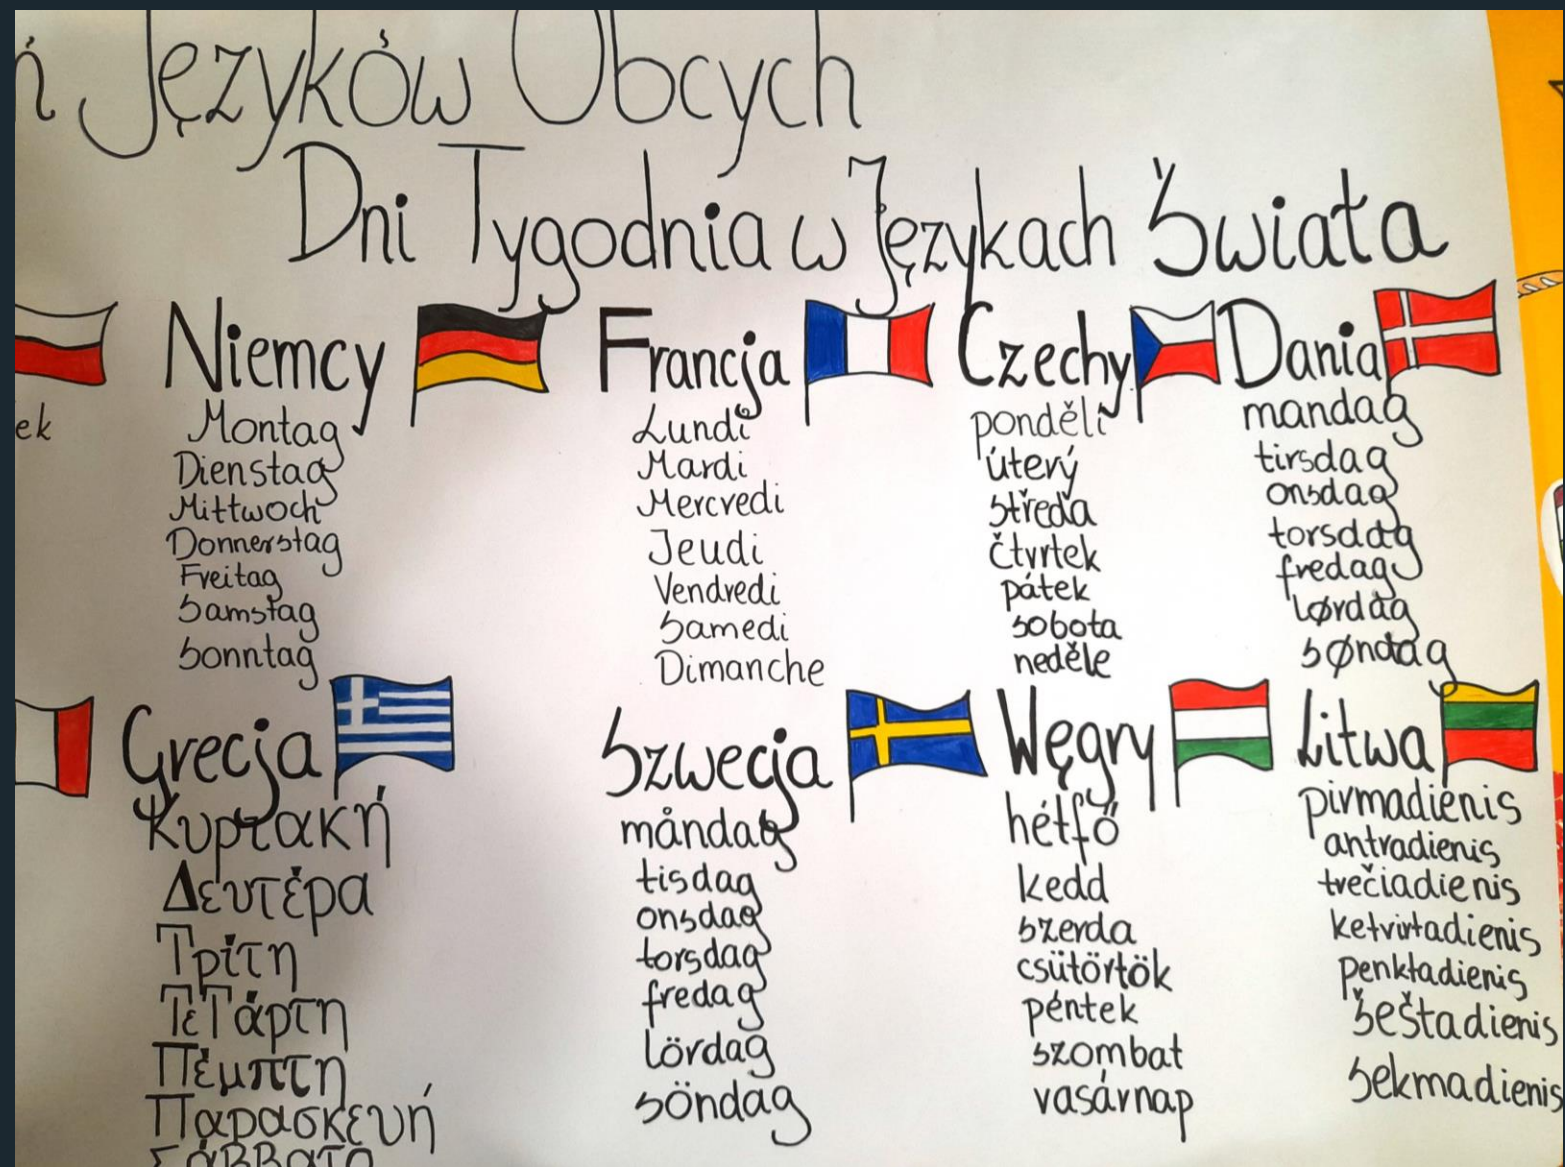 ń Języków Obcych
Dni Tygodnia w Językach Świata
ek
Niemcy
Montag
Dienstag
Mittwoch
Donnerstag
Freitag
Samstag
Sonntag
Francja
Lundi
Mardi
Mercredi
Jeudi
Vendredi
Samedi
Dimanche
Czechy
ponděli
úterý
středa
čtvrtek
pátek
sobota
neděle
Dania
mandag
tirsdag
onsdag
torsdag
fredag
lørdag
søndag
Grecja
Κυριακή
Δευτέρα
Τρίτη
Τετάρτη
Πέμπτη
Παρασκευή
Σάββατο
Szwecja
måndag
tisdag
onsdag
torsdag
fredag
lördag
söndag
Węgry
hétfő
kedd
szerda
csütörtök
péntek
szombat
vasárnap
Litwa
pirmadienis
antradienis
trečiadienis
ketvirtadienis
penktadienis
šeštadienis
sekmadienis